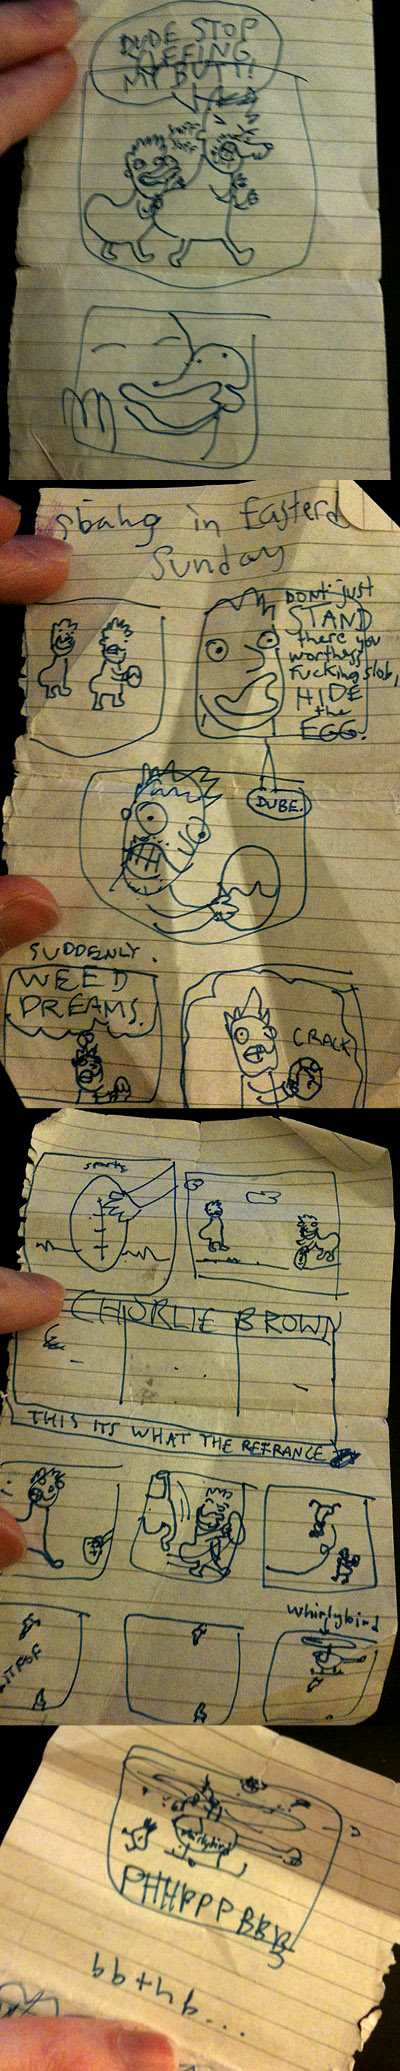 DUDE STOP
SIFFING
MY BUTT!
sniff
sbahg in Easterd
Sunday
DONT just
STAND
there you
worthess
fucking slob,
HIDE
the
EGG.
DUBE.
SUDDENLY.
WEED
DREAMS.
CRACK
sports
CHORLIE BROWN
THIS ITS WHAT THE REFRANCE
whirlybird
whirlybird
PHHPPPBBB